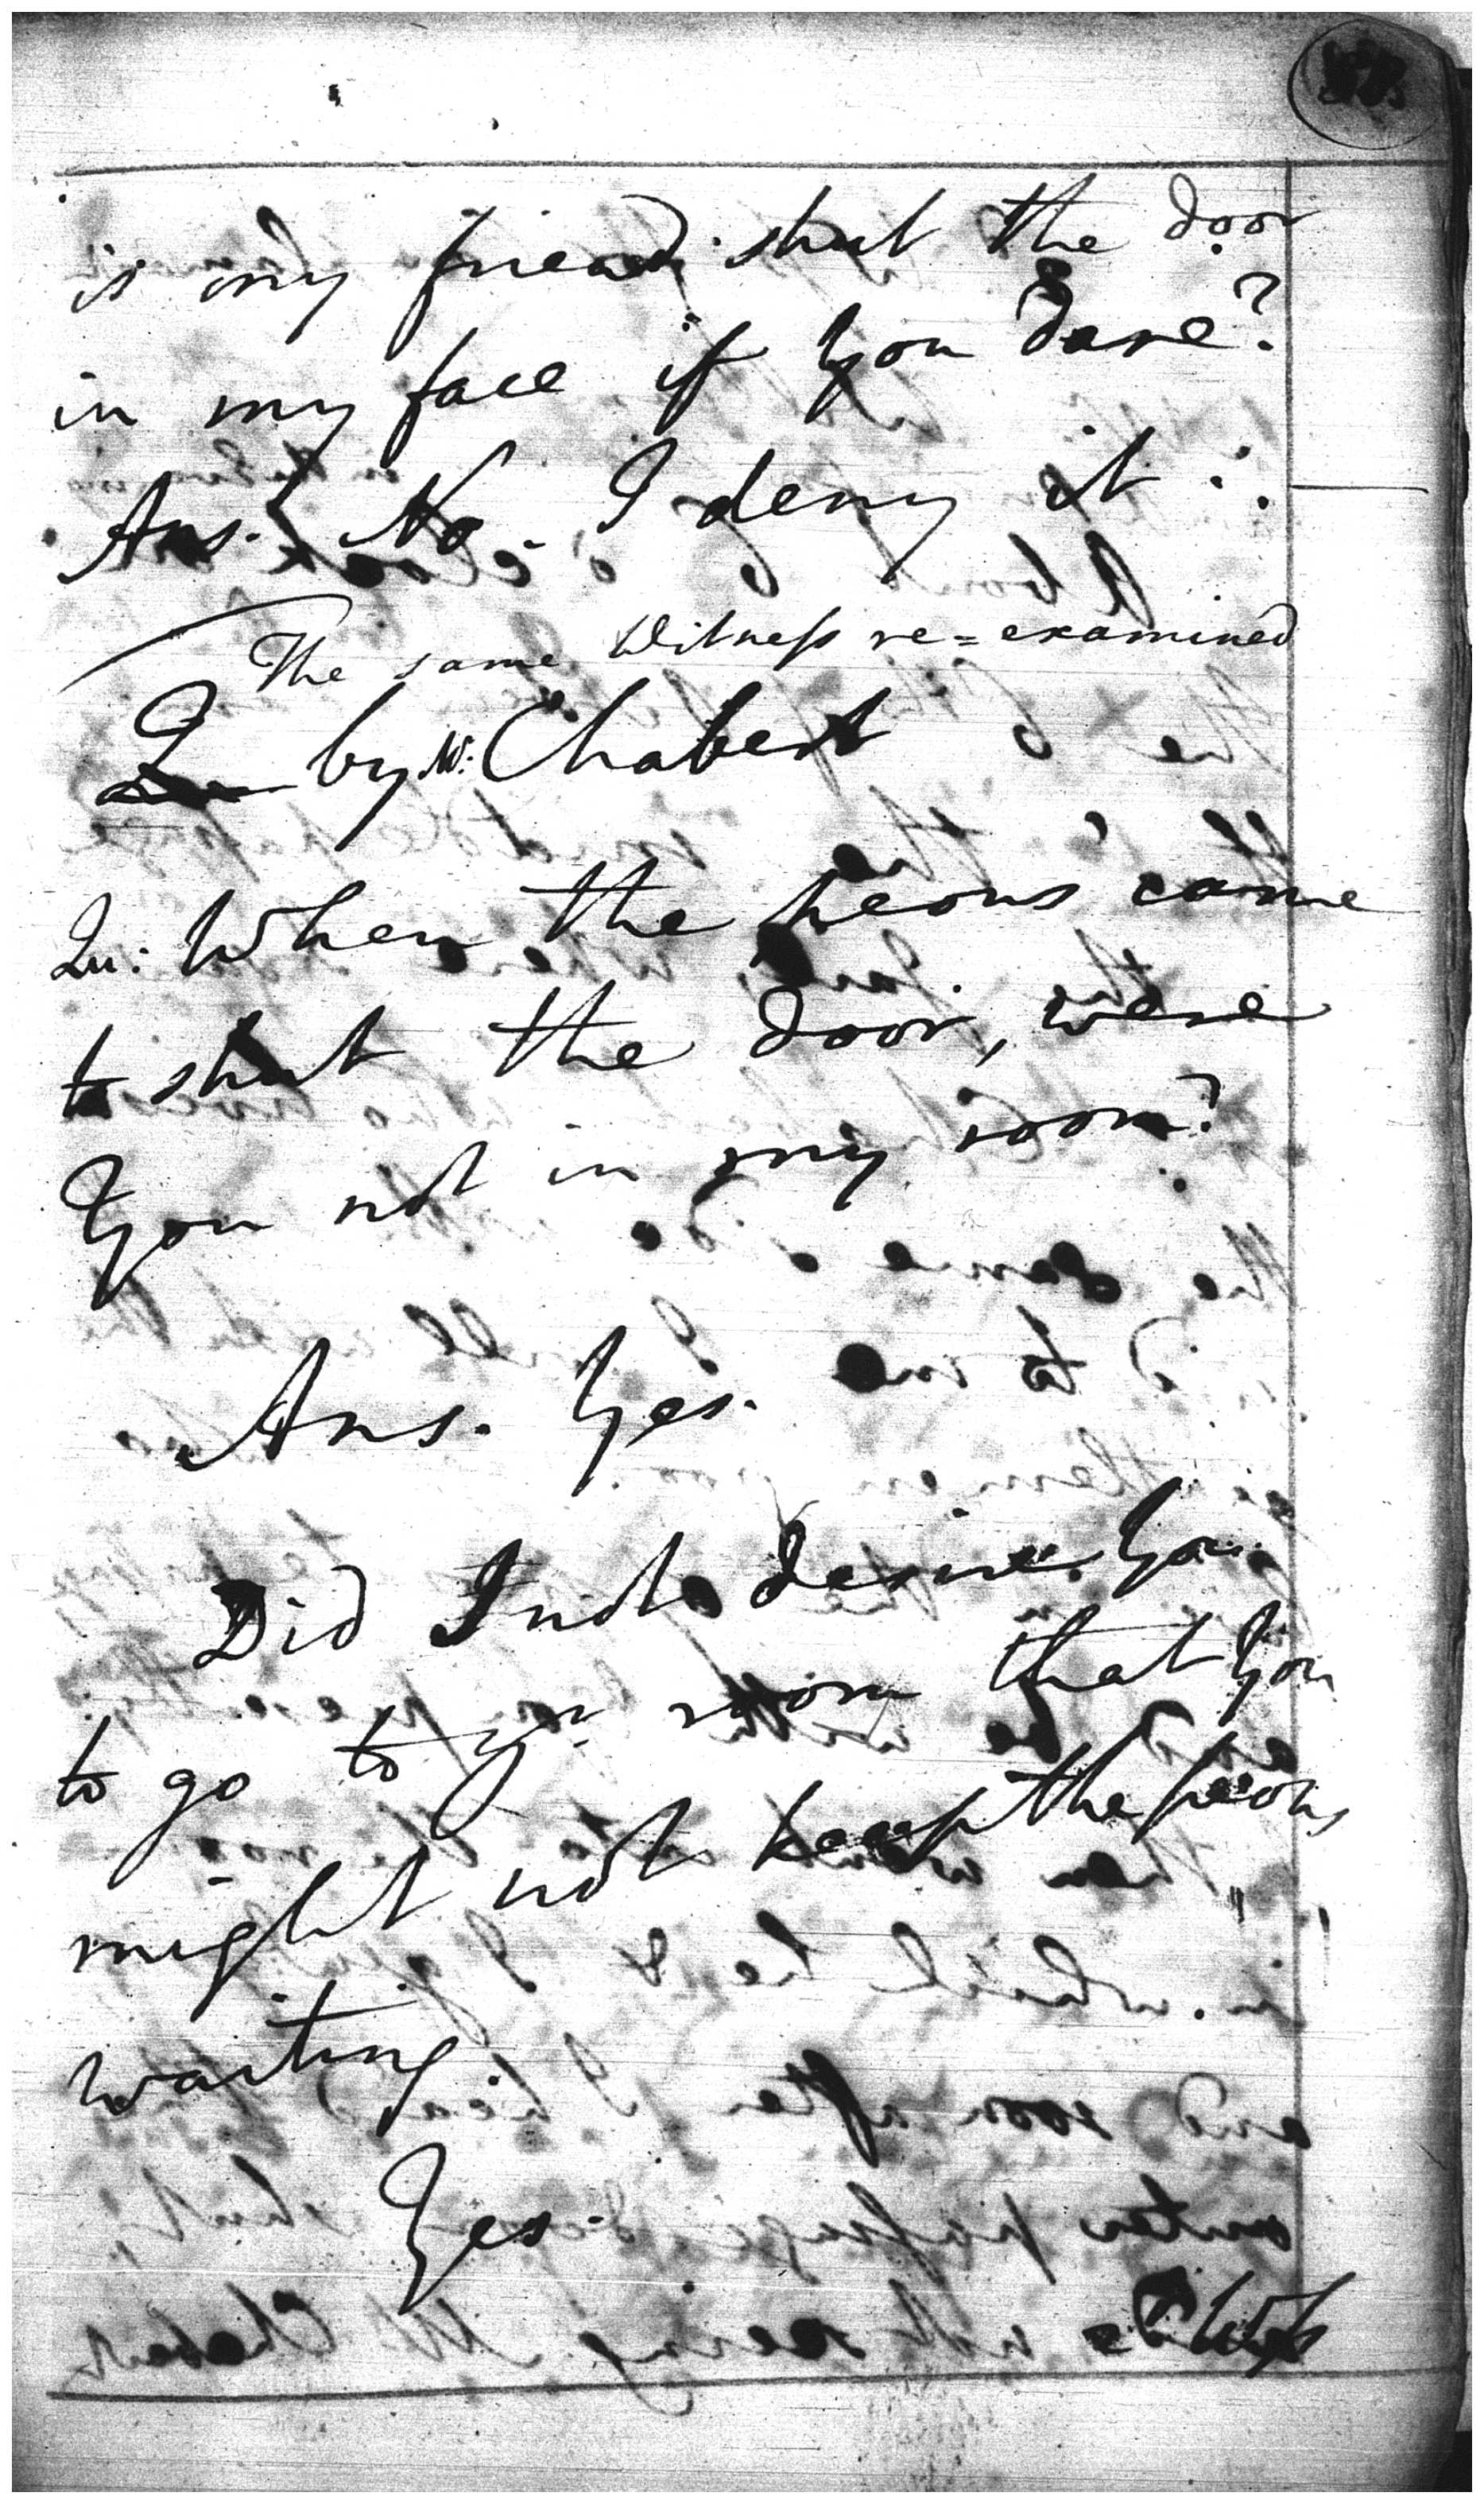 is my friend shut the door
in my face if you dare?
Ans. No. I deny it.
The same Witness re=examined
by Mr. Chabert
Qu: When the peons came
to shut the door, were
You not in my room?
Ans. Yes.
Did I not desire You
to go to yr room that You
might not keep the peons
waiting
Yes.